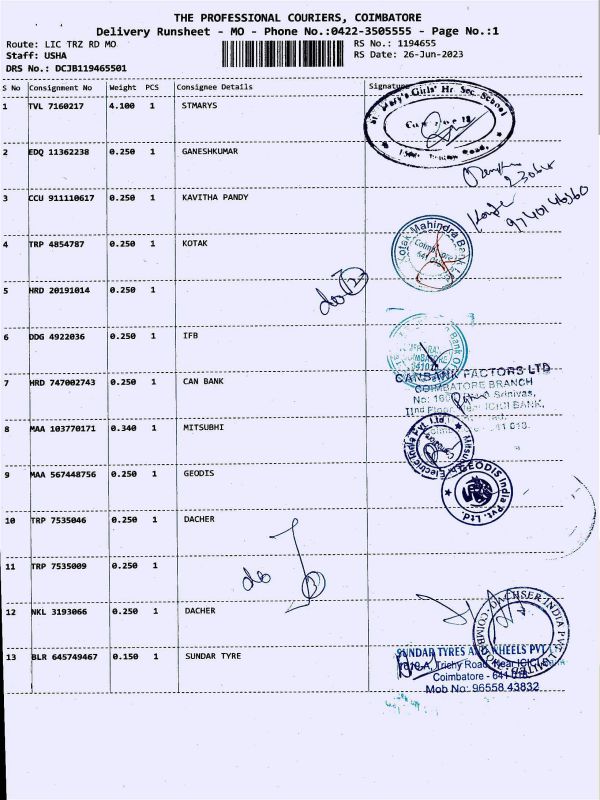 THE PROFESSIONAL COURIERS, COIMBATORE
Delivery Runsheet - MO - Phone No.:0422-3505555 - Page No.:1
Route: LIC TRZ RD MO RS No.: 1194655
Staff: USHA RS Date: 26-Jun-2023
DRS No.: DCJB119465501
S No Consignment No Weight PCS Consignee Details Signature
1 TVL 7160217 4.100 1 STMARYS
St. Mary's Girls' Hr. Sec. School
2 EDQ 11362238 0.250 1 GANESHKUMAR
3 CCU 911110617 0.250 1 KAVITHA PANDY
9740146360
4 TRP 4854787 0.250 1 KOTAK
Kotak Mahindra Bank Ltd
5 HRD 20191014 0.250 1
do
6 DDG 4922036 0.250 1 IFB
7 HRD 747002743 0.250 1 CAN BANK
CANBANK FACTORS LTD
COIMBATORE BRANCH
Srinivas,
IInd Floor, Near ICICI BANK,
8 MAA 103770171 0.340 1 MITSUBHI
Mitsubishi Electric India Pvt. Ltd
9 MAA 567448756 0.250 1 GEODIS
GEODIS India Pvt. Ltd.
10 TRP 7535046 0.250 1 DACHER
11 TRP 7535009 0.250 1
do
12 NKL 3193066 0.250 1 DACHER
DACHSER INDIA PVT. LIMITED COIMBATORE
13 BLR 645749467 0.150 1 SUNDAR TYRE
SUNDAR TYRES AND WHEELS PVT LTD
1610-A, Trichy Road, Near ICICI Bank
Coimbatore - 641 018.
Mob No: 96558 43832